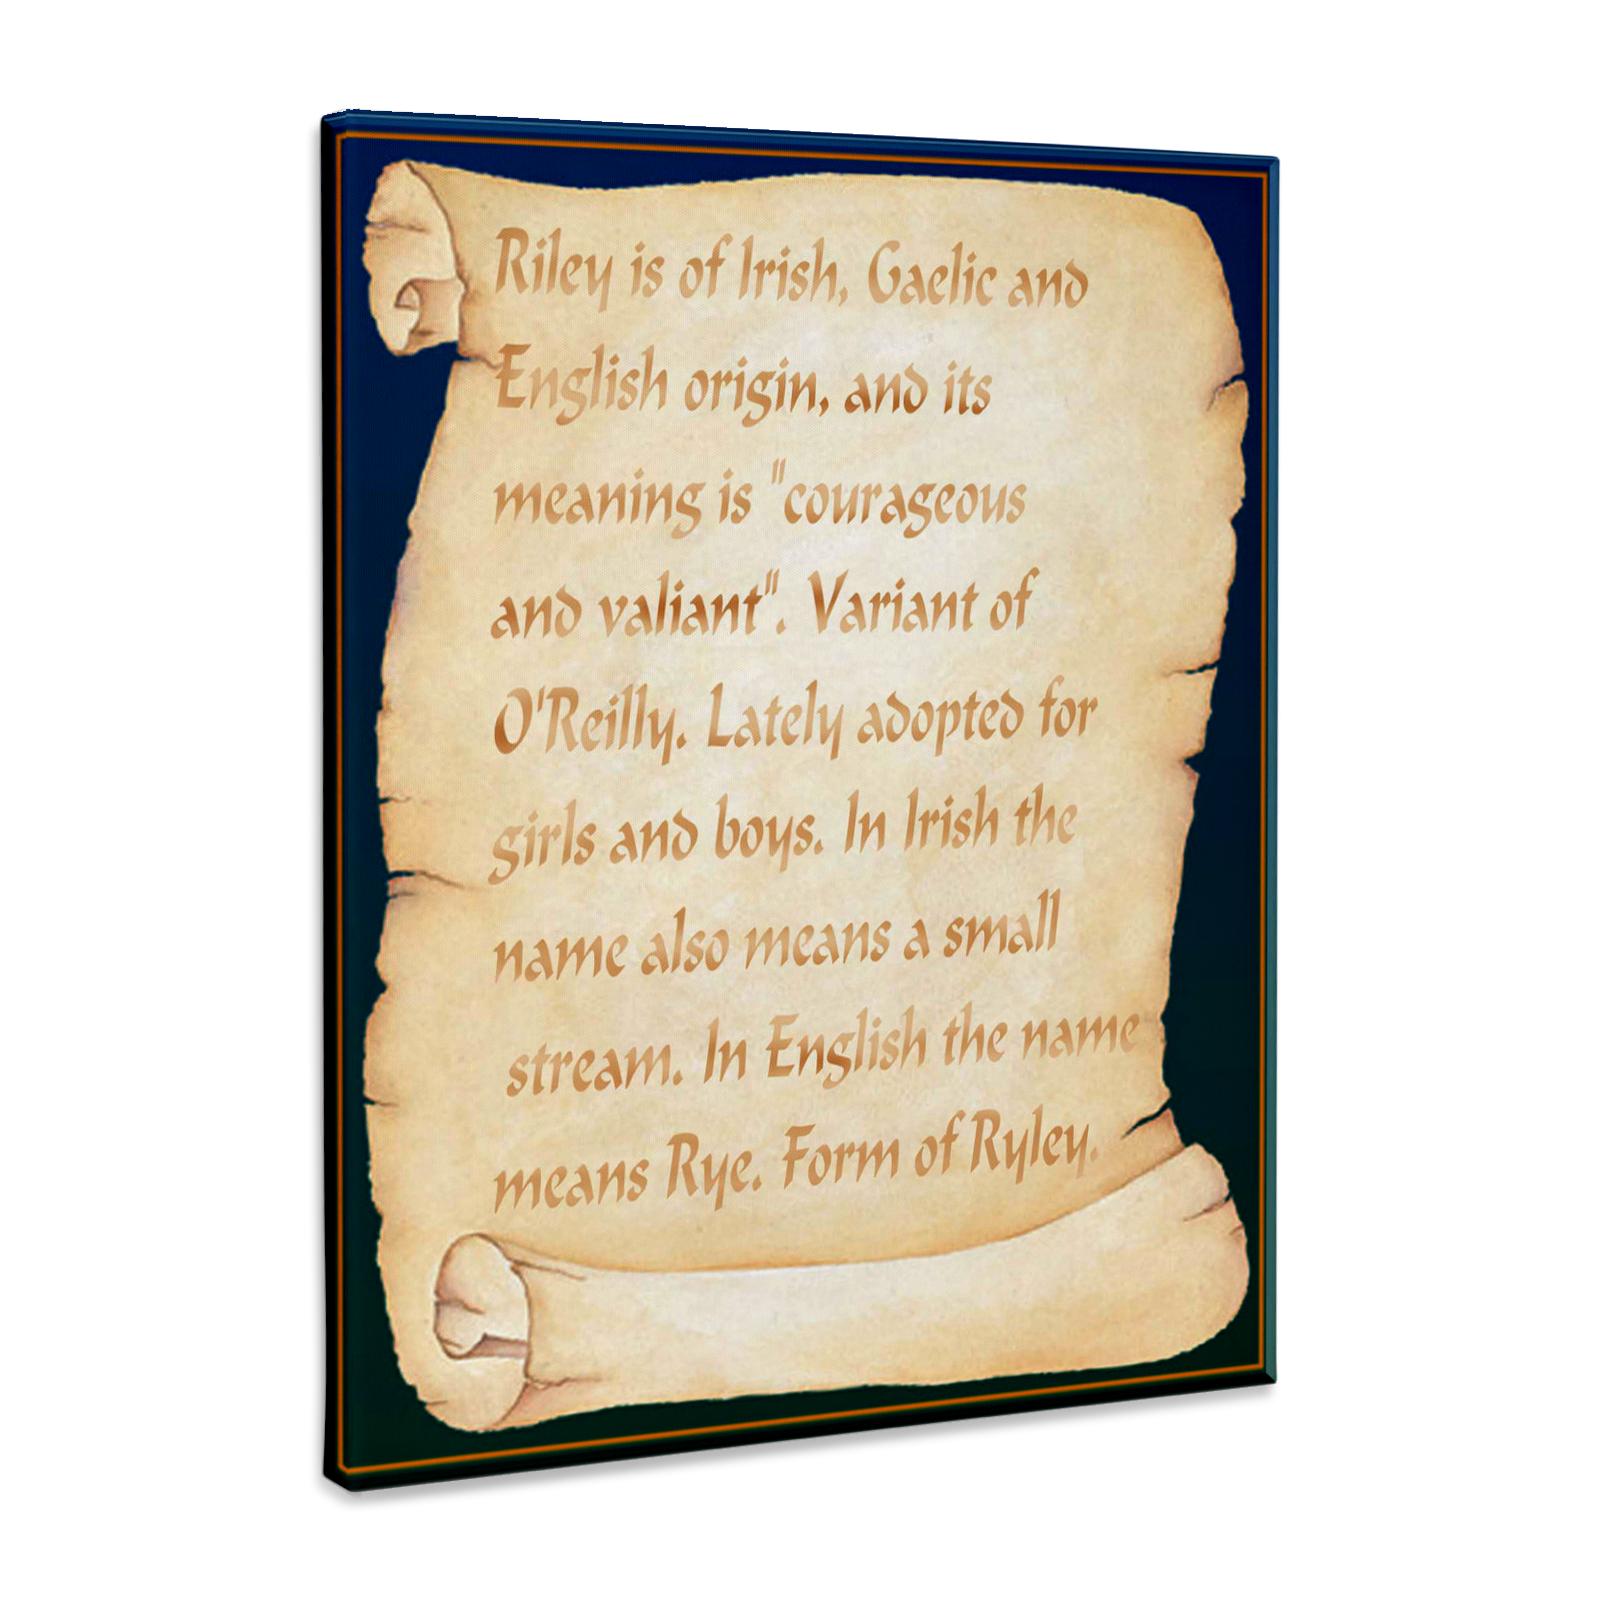 Riley is of Irish, Gaelic and
English origin, and its
meaning is "courageous
and valiant". Variant of
O'Reilly. Lately adopted for
girls and boys. In Irish the
name also means a small
stream. In English the name
means Rye. Form of Ryley.